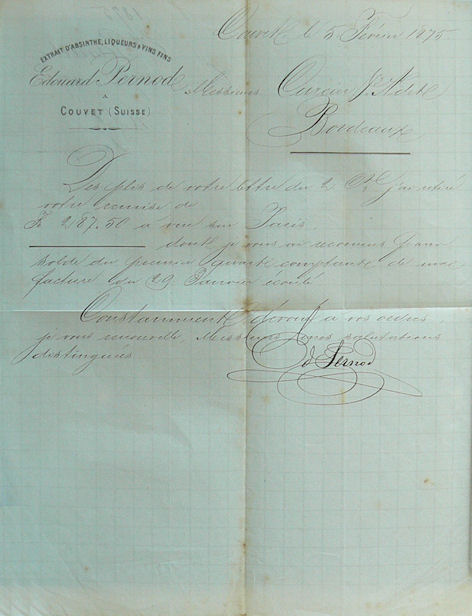 EXTRAIT D'ABSINTHE, LIQUEURS & VINS FINS
Edouard Pernod
A
COUVET (SUISSE)
Couvet le 5 Février 1875
Messieurs
Bordeaux
Des plis de votre lettre du 2 Ct j'ai retiré
votre remise de
F 287.50 à vue sur Paris,
dont je vous
solde du premier comptant de ma
facture du 29 Janvier écoulé
Constamment dévoué à vos ordres,
je vous renouvelle, Messieurs, mes salutations
distinguées
Ed Pernod